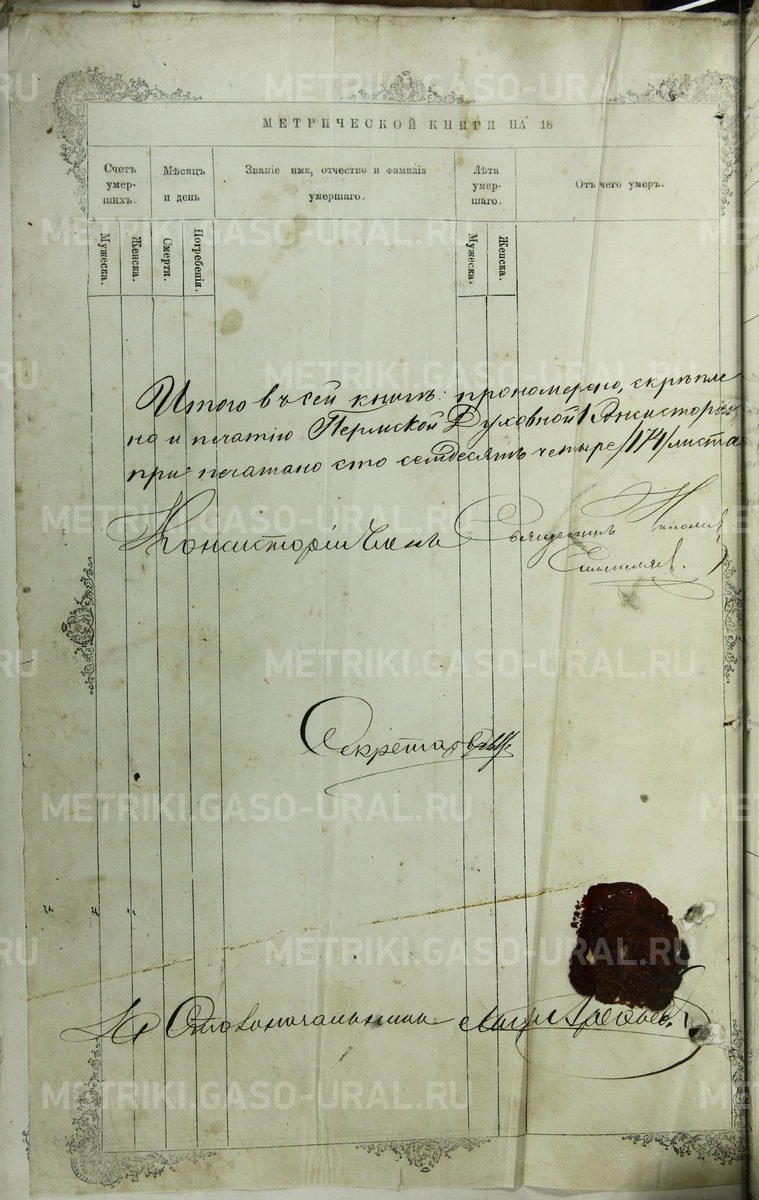 METRIKI.GASO-URAL.RU
МЕТРИЧЕСКОЙ КНИГИ НА 18
Счетъ умер- шихъ.
Мѣсяцъ и день
Званіе имя, отчество и фамилія умершаго.
Лѣта умер- шаго.
Отъ чего умеръ.
Мужеска.
Женска.
Смерти.
Погребенія.
Мужеска.
Женска.
Итого въ сей книгѣ прономерено, скрѣпле
но и печатію Пермской Духовной Консисторіи
при печатано сто семдесятъ четыре /174/ листа
Консисторіи Членъ Священникъ Николай
Секретарь
Столоначальникъ